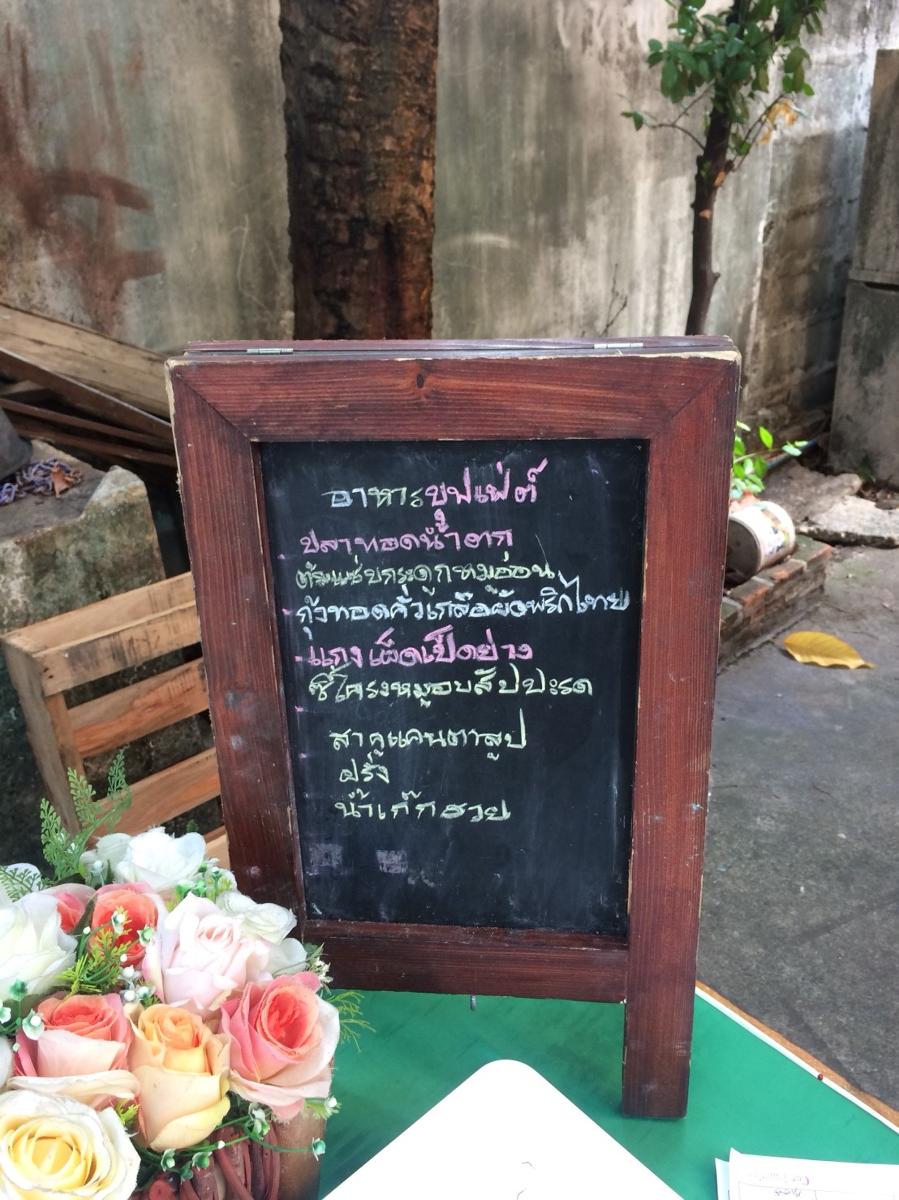 อาหารบุฟเฟ่ต์
- ปลาทอดน้ำตก
ต้มแซ่บกระดูกหมูอ่อน
- กุ้งทอดคั่วเกลือผัดพริกไทย
- แกงเผ็ดเป็ดย่าง
ซี่โครงหมูอบสัปปะรด
สาคูแคนตาลูป
ฝรั่ง
น้ำเก๊กฮวย